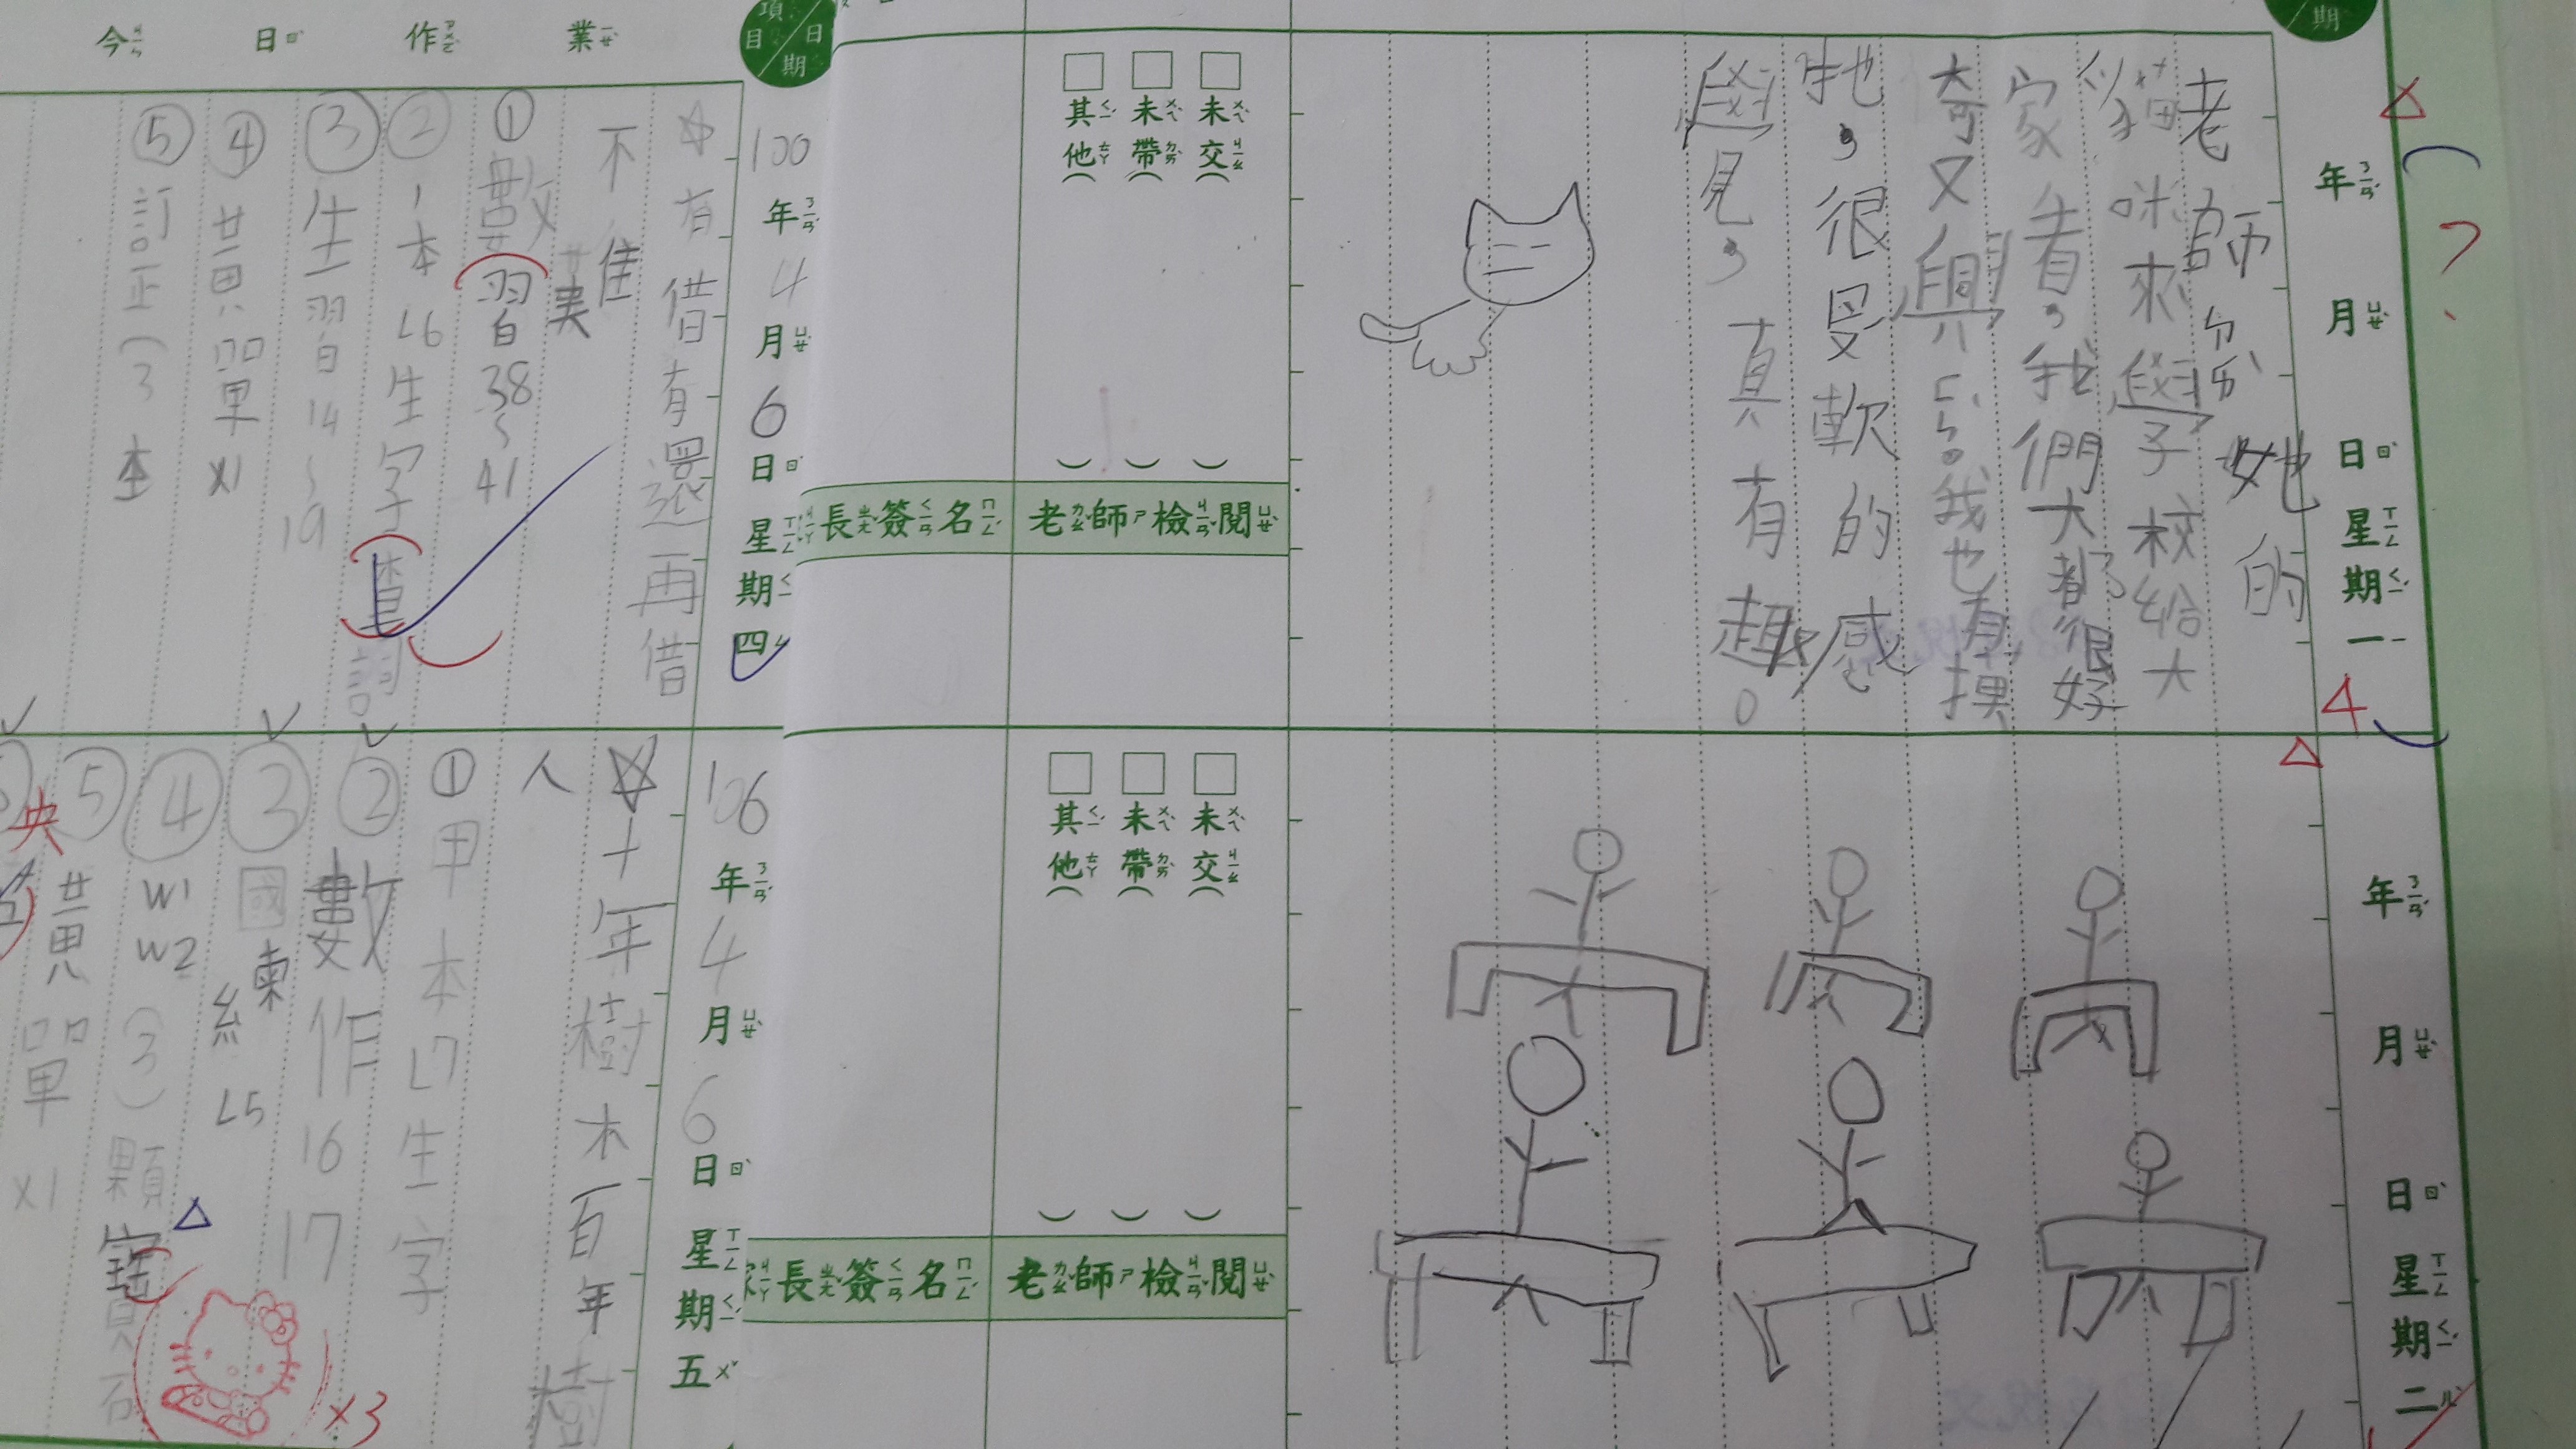 年 月 日 星期一
老師ㄅㄢ她的
貓咪來學校給大
家看，我們大都很好
奇又興ㄈㄣˋ。我也有摸
牠，很柔軟的感
覺，真有趣。
未交
未帶
其他
老師檢閱
長簽名
項目 日期
今日作業
100年4月6日星期四
☆有借有還再借
不佳
①數習38~41
②1本L6生字
詞
③生習14~19
④黃單x1
⑤訂正(3
4
年 月 日 星期二
未交
未帶
其他
老師檢閱
家長簽名
106年4月6日星期五
☆十年樹木百年樹
人
①甲本L7生字
②數作16 17
③國練L5
④W1 W2 (3)顆寶石
⑤黃單x1
x3